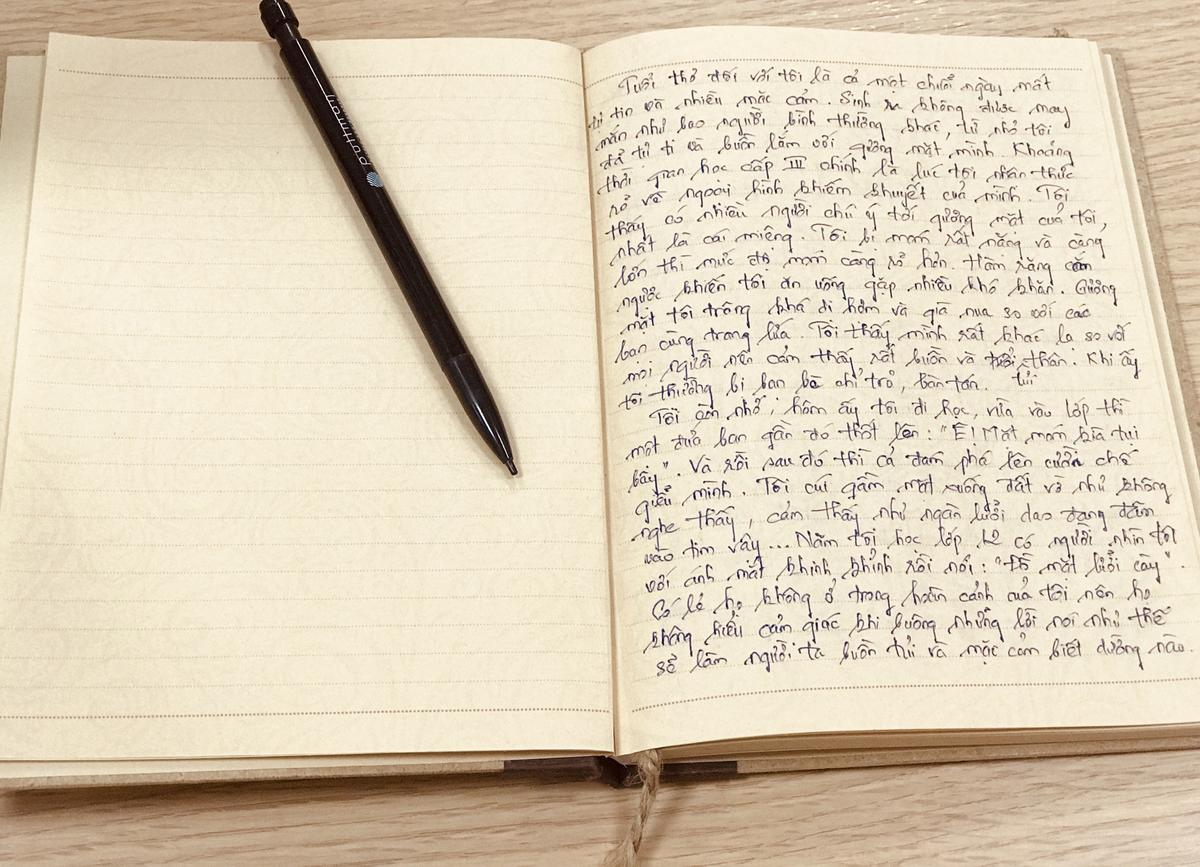 putman
Tuổi thơ đối với tôi là cả một chuỗi ngày mất
tự tin và nhiều mặc cảm. Sinh ra không được may
mắn như bao người bình thường khác, từ nhỏ tôi
đã tự ti và buồn lắm với gương mặt mình. Khoảng
thời gian học cấp III chính là lúc tôi nhận thức
rõ về ngoại hình khiếm khuyết của mình. Tôi
thấy có nhiều người chú ý tới gương mặt của tôi,
nhất là cái miệng. Tôi bị móm rất nặng và càng
lớn thì mức độ móm càng rõ hơn. Hàm răng cắn
ngược khiến tôi ăn uống gặp nhiều khó khăn. Gương
mặt tôi trông khá dị hợm và già nua so với các
bạn cùng trang lứa. Tôi thấy mình rất khác lạ so với
mọi người nên cảm thấy rất buồn và tủi thân. Khi ấy
tôi thường bị bạn bè chỉ trỏ, bàn tán.
Tôi còn nhớ, hôm ấy tôi đi học, vừa vào lớp thì
một đứa bạn gần đó thốt lên: "Ê! Mặt móm kìa tụi
bây". Và rồi sau đó thì cả đám phá lên cười chế
giễu mình. Tôi cúi gầm mặt xuống đất vờ như không
nghe thấy, cảm thấy như ngàn lưỡi dao đang đâm
vào tim vậy... Năm tôi học lớp 12 có người nhìn tôi
với ánh mắt khinh khỉnh rồi nói: "Đồ mặt lưỡi cày".
Có lẽ họ không ở trong hoàn cảnh của tôi nên họ
không hiểu cảm giác khi buông những lời nói như thế
sẽ làm người ta buồn tủi và mặc cảm biết dường nào.